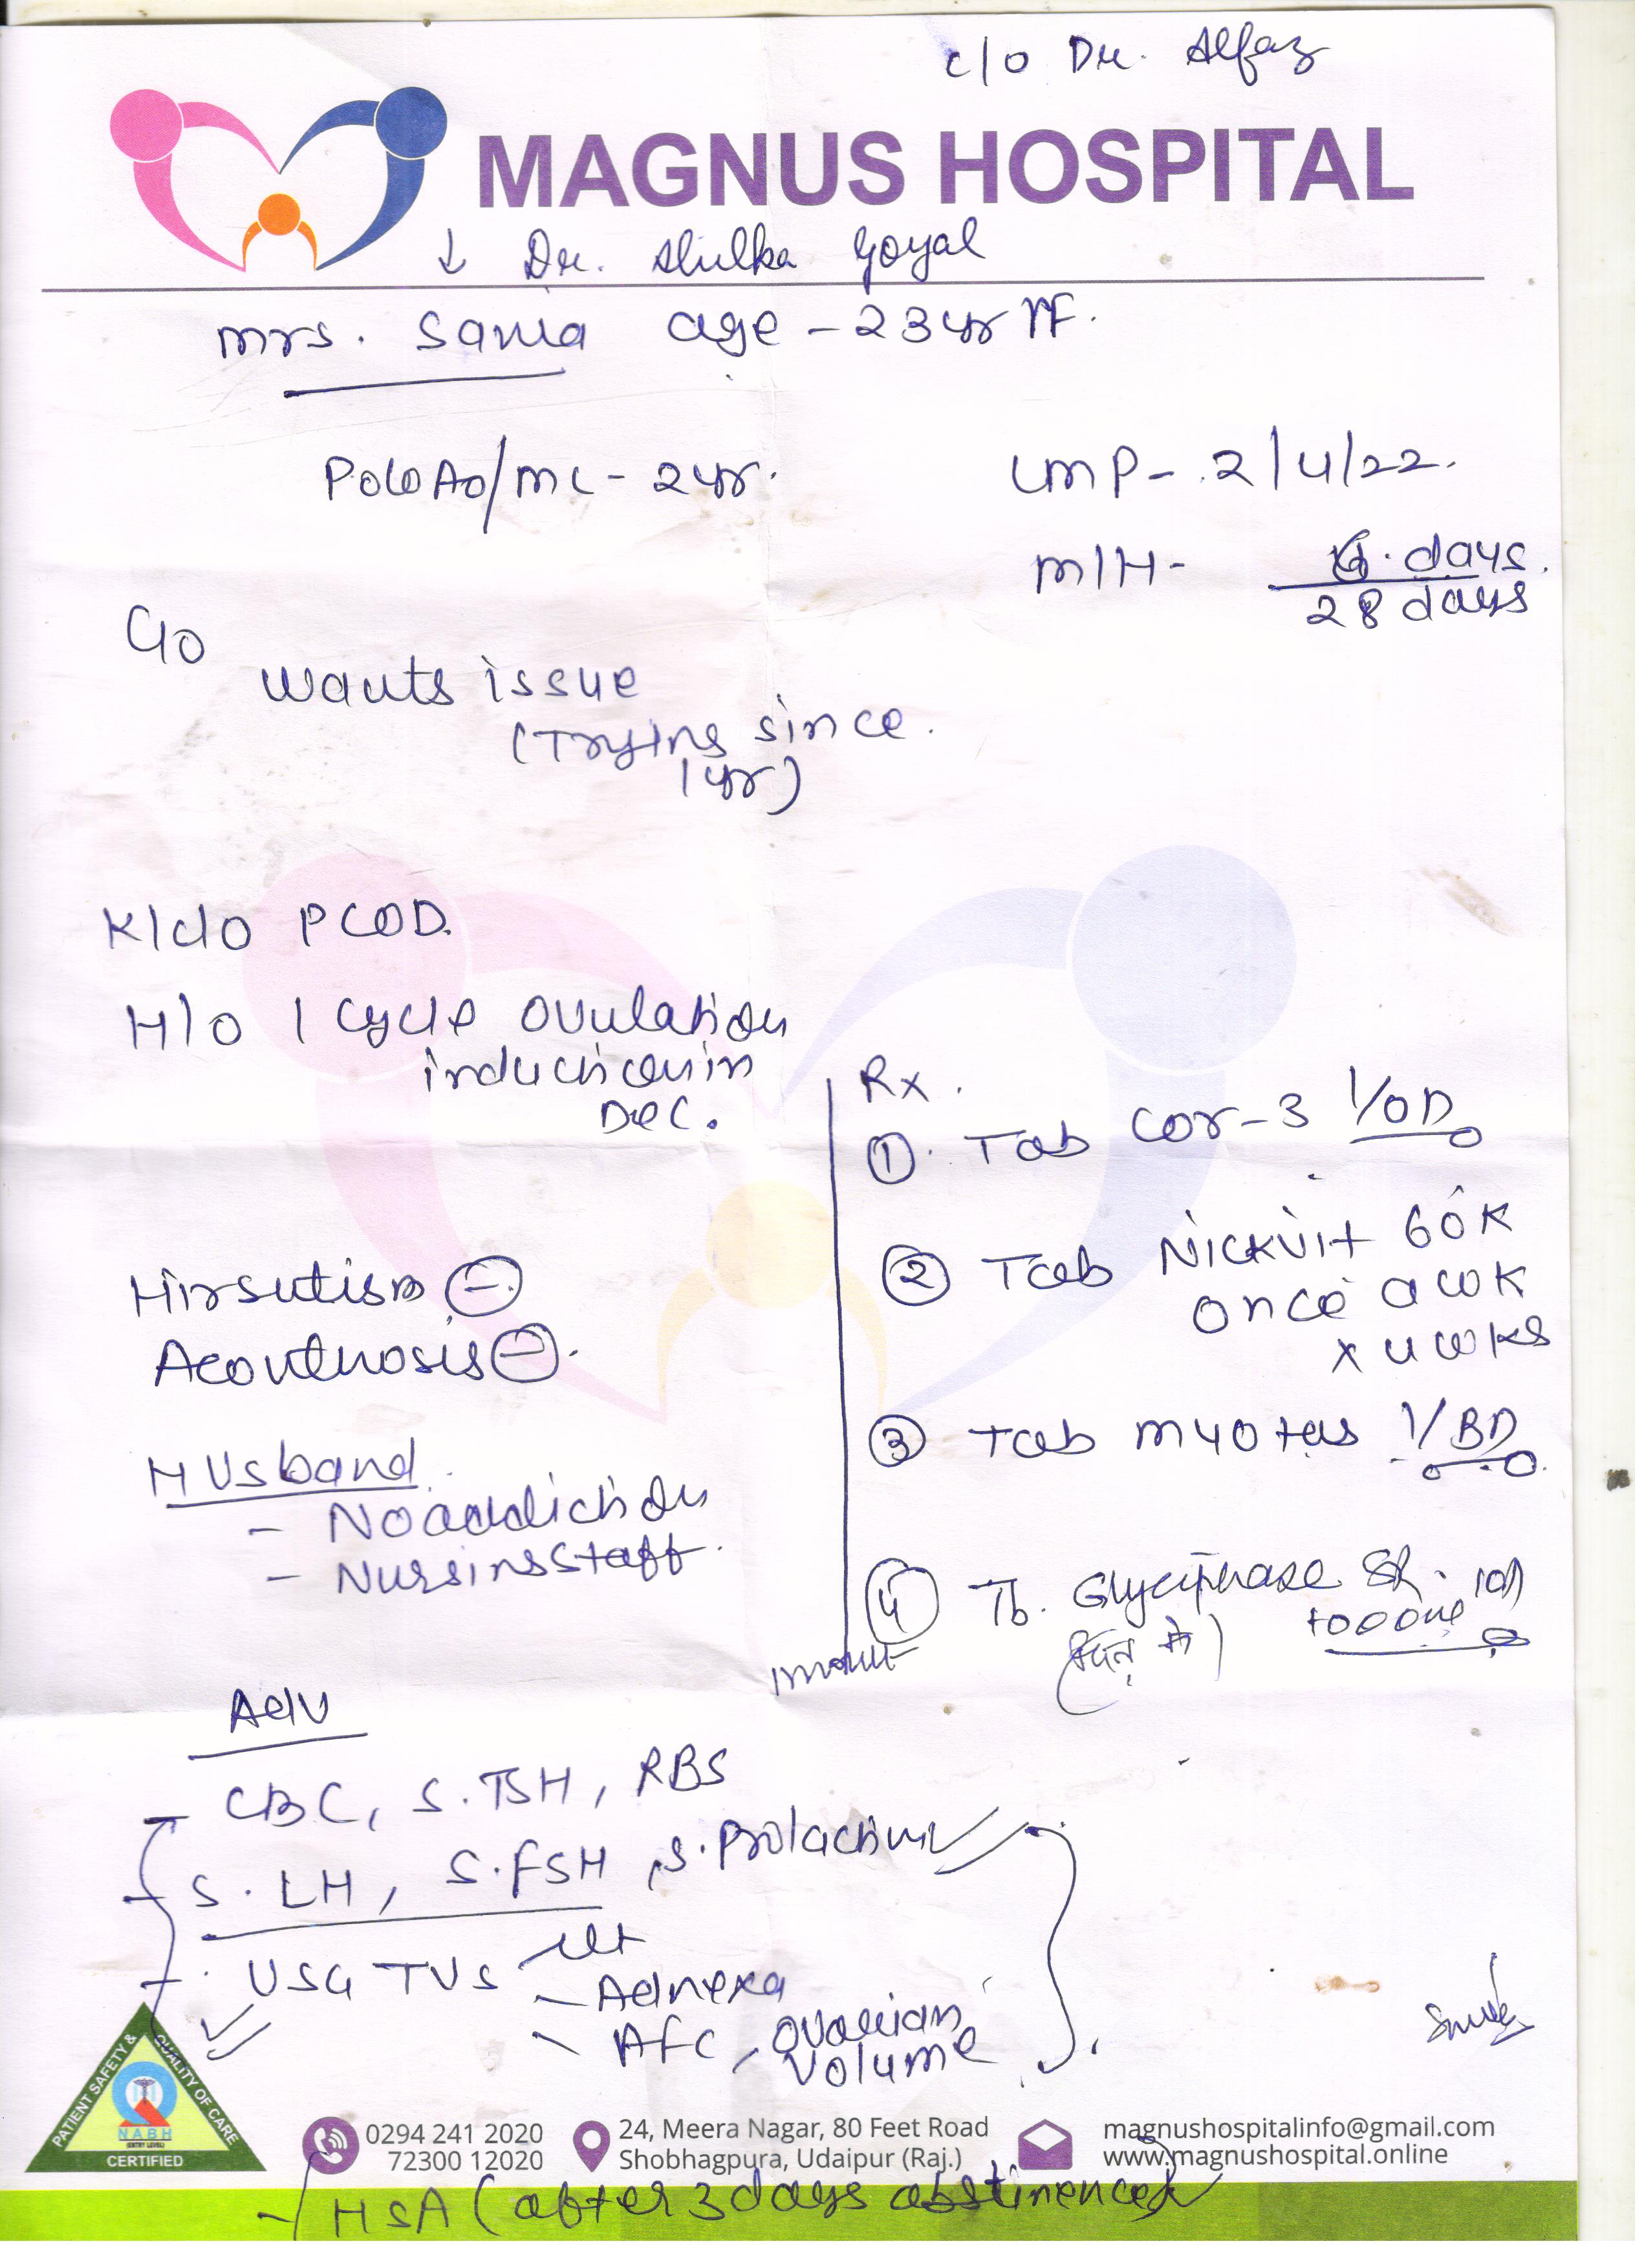 c/o Dr. Alfaz
MAGNUS HOSPITAL
↓ Dr. Shilka Goyal
Mrs. Sania age - 23yr /F.
P0L0A0/ML - 2yr.
LMP - 2/4/22.
M/H - days.
28 days
C/o
wants issue
(Trying since
1yr)
K/C/O PCOD.
H/O 1 cycle ovulation
induction in
Dec.
Hirsutism ⊖
Acanthosis ⊖.
Husband
- No addiction
- Nursing staff.
Rx.
① Tab Cor-3 1/OD
② Tab Nickvit 60K
once a wk
x 4 wks
③ Tab Myotas 1/BD
④ Tb. Glyciphase SR. 1OD
1000mg
Adv
CBC, S.TSH, RBS
S.LH, S.FSH, S.Prolactin
USG TVS
- Adnexa
- AFC, ovarian
volume
PATIENT SAFETY & QUALITY OF CARE
NABH
(ENTRY LEVEL)
CERTIFIED
0294 241 2020
72300 12020
24, Meera Nagar, 80 Feet Road
Shobhagpura, Udaipur (Raj.)
magnushospitalinfo@gmail.com
www.magnushospital.online
- HSA (after 3 days abstinence)